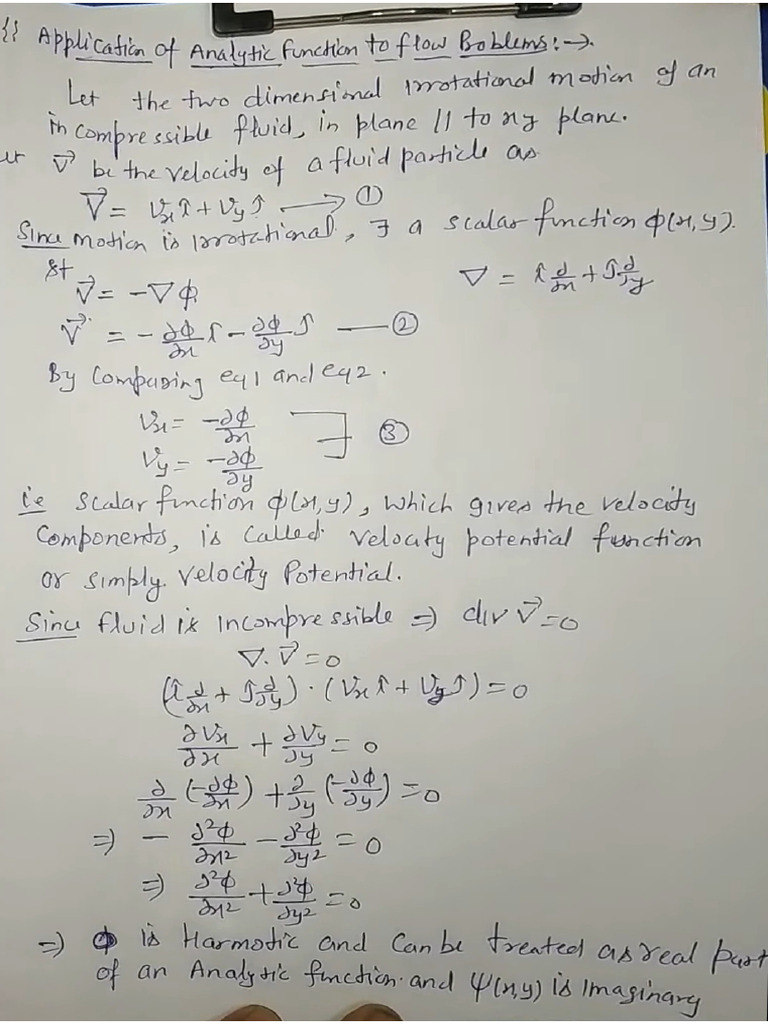 §§ Application of Analytic function to flow Boblems:→.
Let the two dimensional Irrotational motion of an
incompressible fluid, in plane || to xy plane.
let V⃗ be the velocity of a fluid particle as
V⃗ = Vₓ î + Vy ĵ ⟶ ①
Since motion is Irrotational, ∃ a scalar function ϕ(x,y).
st V⃗ = -∇ϕ ∇ = î ∂/∂x + ĵ ∂/∂y
V⃗ = - ∂ϕ/∂x î - ∂ϕ/∂y ĵ — ②
By Comparing eq1 and eq2.
Vₓ = -∂ϕ/∂x
Vy = -∂ϕ/∂y ] ③
i.e scalar function ϕ(x,y), which gives the velocity
Components, is called velocity potential function
or simply velocity Potential.
Since fluid is incompressible ⇒ div V⃗ = 0
∇. V⃗ = 0
(î ∂/∂x + ĵ ∂/∂y) · (Vₓ î + Vy ĵ) = 0
∂Vₓ/∂x + ∂Vy/∂y = 0
∂/∂x (-∂ϕ/∂x) + ∂/∂y (-∂ϕ/∂y) = 0
⇒ - ∂²ϕ/∂x² - ∂²ϕ/∂y² = 0
⇒ ∂²ϕ/∂x² + ∂²ϕ/∂y² = 0
⇒ ϕ is Harmotic and Can be treated as real part
of an Analytic function and ψ(x,y) is Imaginary